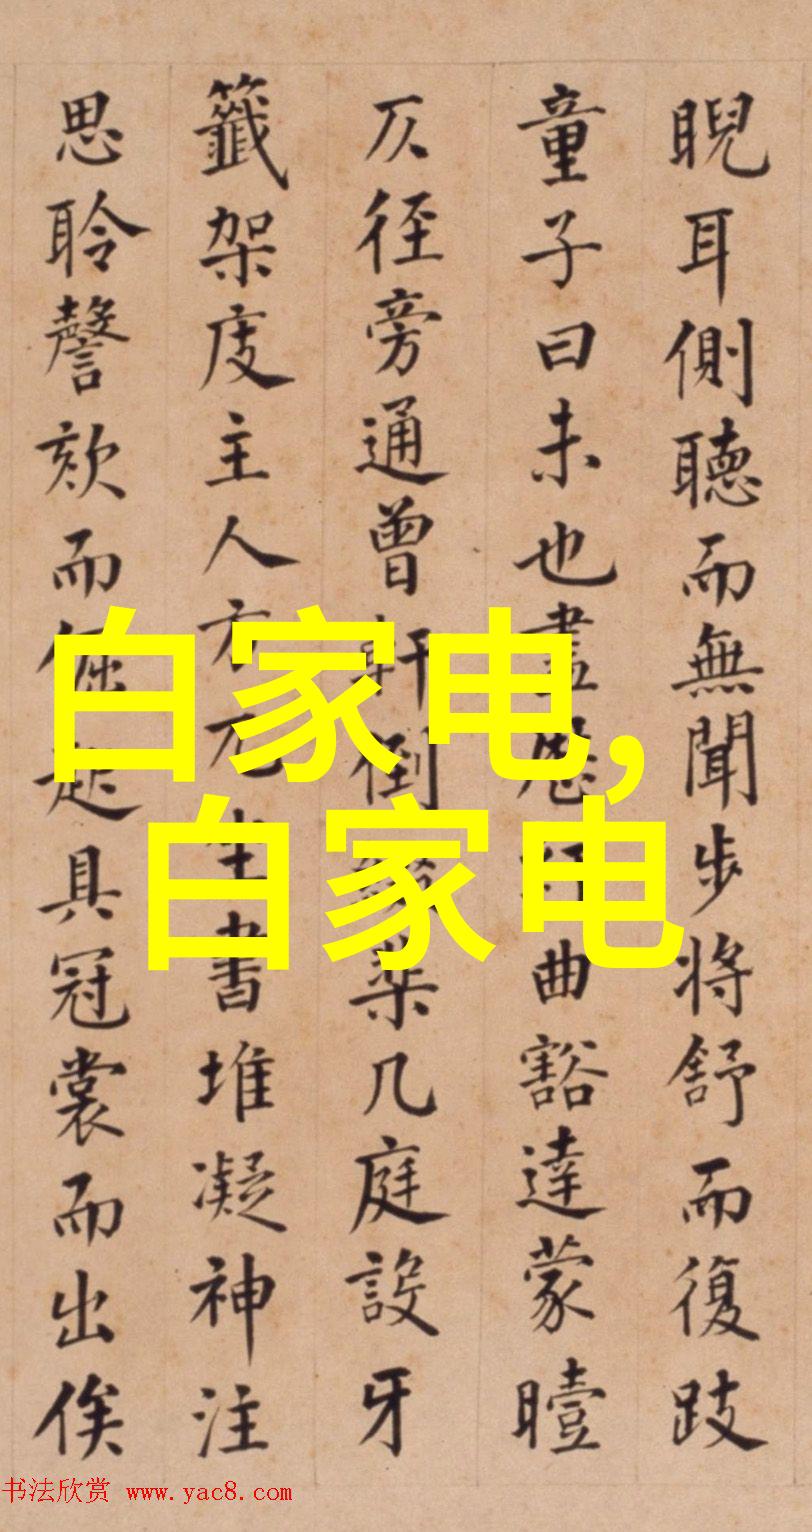 睨耳側聽而無聞步将舒而復跂
童子曰未也盡
曲豁達蒙曀
仄径旁通曾軒倒
藥几庭設牙
籤架庋主人方兀坐書堆凝神注
思聆謦欬而倔起具冠裳而出俟
白家电,
白家电
书法欣赏 www.yac8.com